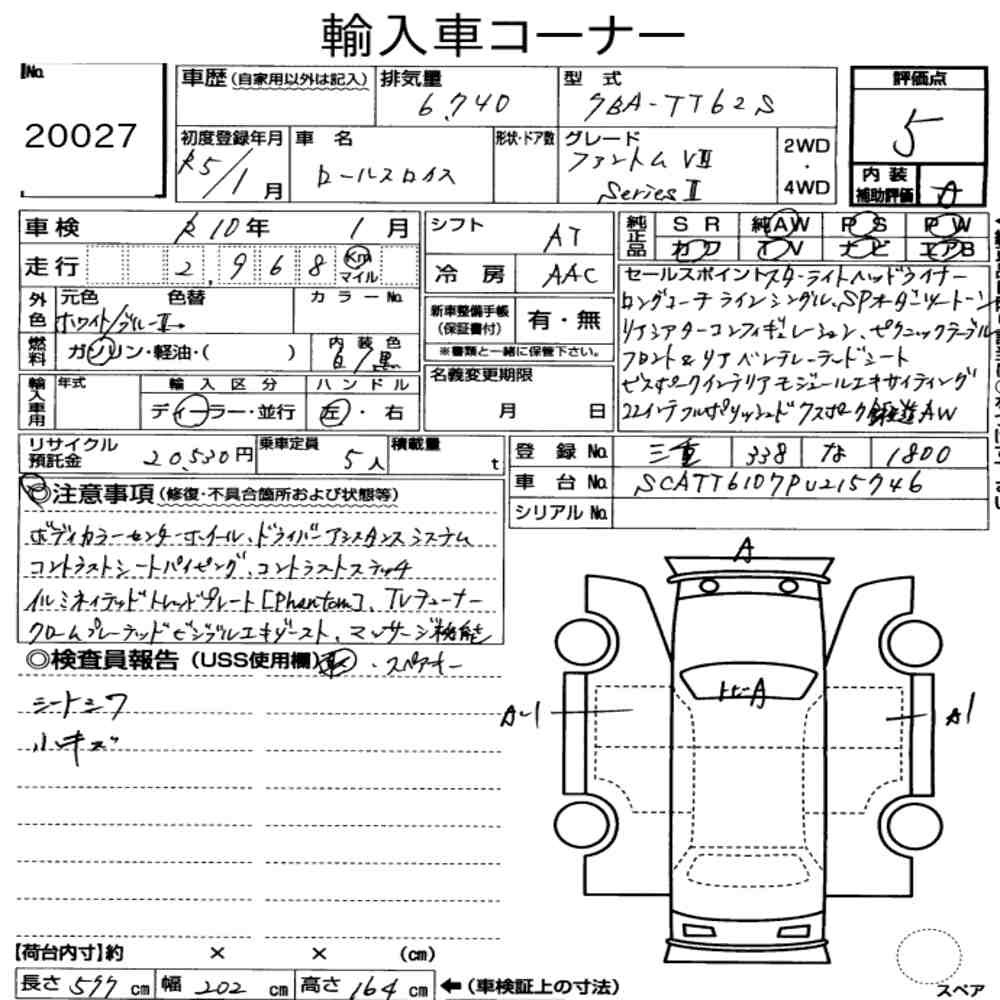 輸入車コーナー
No. 20027
車歴(自家用以外は記入)
排気量 6,740
型式 7BA-TT62S
評価点 5
初度登録年月 R5/1月
車名 ロールスロイス
形状・ドア数
グレード ファントムVⅢ
Series Ⅱ
2WD・4WD
内装補助評価 A
車検 R10年 1月
走行 2,968 Km マイル
外色 元色 色替 カラーNo.
ホワイト/ブルーⅡ
燃料 ガソリン・軽油・( )
内装色 白/黒
輸入車用 年式
輸入区分 ディーラー・並行
ハンドル 左・右
リサイクル預託金 20,530円
乗車定員 5人
積載量 t
シフト AT
冷房 AAC
新車整備手帳(保証書付) 有・無
※書類と一緒に保管下さい。
名義変更期限
月 日
純正品 SR 純AW PS PW
カワ TV ナビ エアB
セールスポイント スターライトヘッドライナー
ロングコーチラインシングル、SPオーダーツートーン
リアシアターコンフィギュレーション、ピクニックテーブル
フロント&リアベンチレーテッドシート
ビスポークインテリアモジュールエキサイティング
22インチフルポリッシュド7スポーク鍛造AW
登録No. 三重 338 な 1800
車台No. SCATT6107PU215746
シリアルNo.
◎注意事項(修復・不具合箇所および状態等)
ボディカラーセンターホイール、ドライバーアシスタンスシステム
コントラストシートパイピング、コントラストステッチ
イルミネイテッドトレッドプレート[Phantom]、TVチューナー
クロームプレーテッドビジブルエキゾースト、マッサージ機能
◎検査員報告(USS使用欄) ・スペアキー
シートシワ
小キズ
A
トビ-A
A-1
A1
【荷台内寸】約 × × (cm)
長さ 577 cm 幅 202 cm 高さ 164 cm ←(車検証上の寸法)
スペア